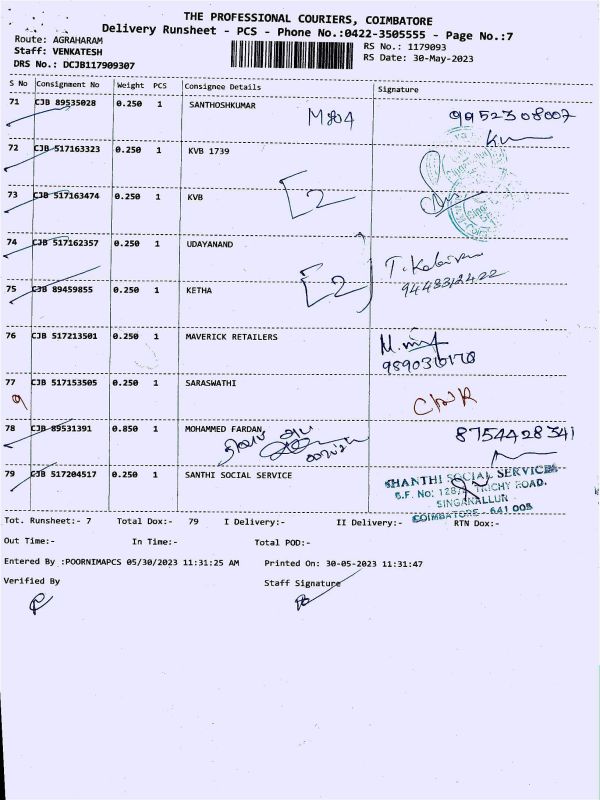 THE PROFESSIONAL COURIERS, COIMBATORE
Delivery Runsheet - PCS - Phone No.:0422-3505555 - Page No.:7
Route: AGRAHARAM
RS No.: 1179093
Staff: VENKATESH
RS Date: 30-May-2023
DRS No.: DCJB117909307
S No Consignment No Weight PCS Consignee Details Signature
71 CJB 89535028 0.250 1 SANTHOSHKUMAR 9952308007
72 CJB 517163323 0.250 1 KVB 1739
73 CJB 517163474 0.250 1 KVB [2
74 CJB 517162357 0.250 1 UDAYANAND
75 CJB 89459855 0.250 1 KETHA [2]
76 CJB 517213501 0.250 1 MAVERICK RETAILERS
77 CJB 517153505 0.250 1 SARASWATHI
9
78 CJB 89531391 0.850 1 MOHAMMED FARDAN 8754428341
79 CJB 517204517 0.250 1 SANTHI SOCIAL SERVICE
SHANTHI SOCIAL SERVICES
TRICHY ROAD,
SINGANALLUR
COIMBATORE - 641 005
Tot. Runsheet:- 7 Total Dox:- 79 I Delivery:- II Delivery:- RTN Dox:-
Out Time:- In Time:- Total POD:-
Entered By :POORNIMAPCS 05/30/2023 11:31:25 AM Printed On: 30-05-2023 11:31:47
Verified By Staff Signature